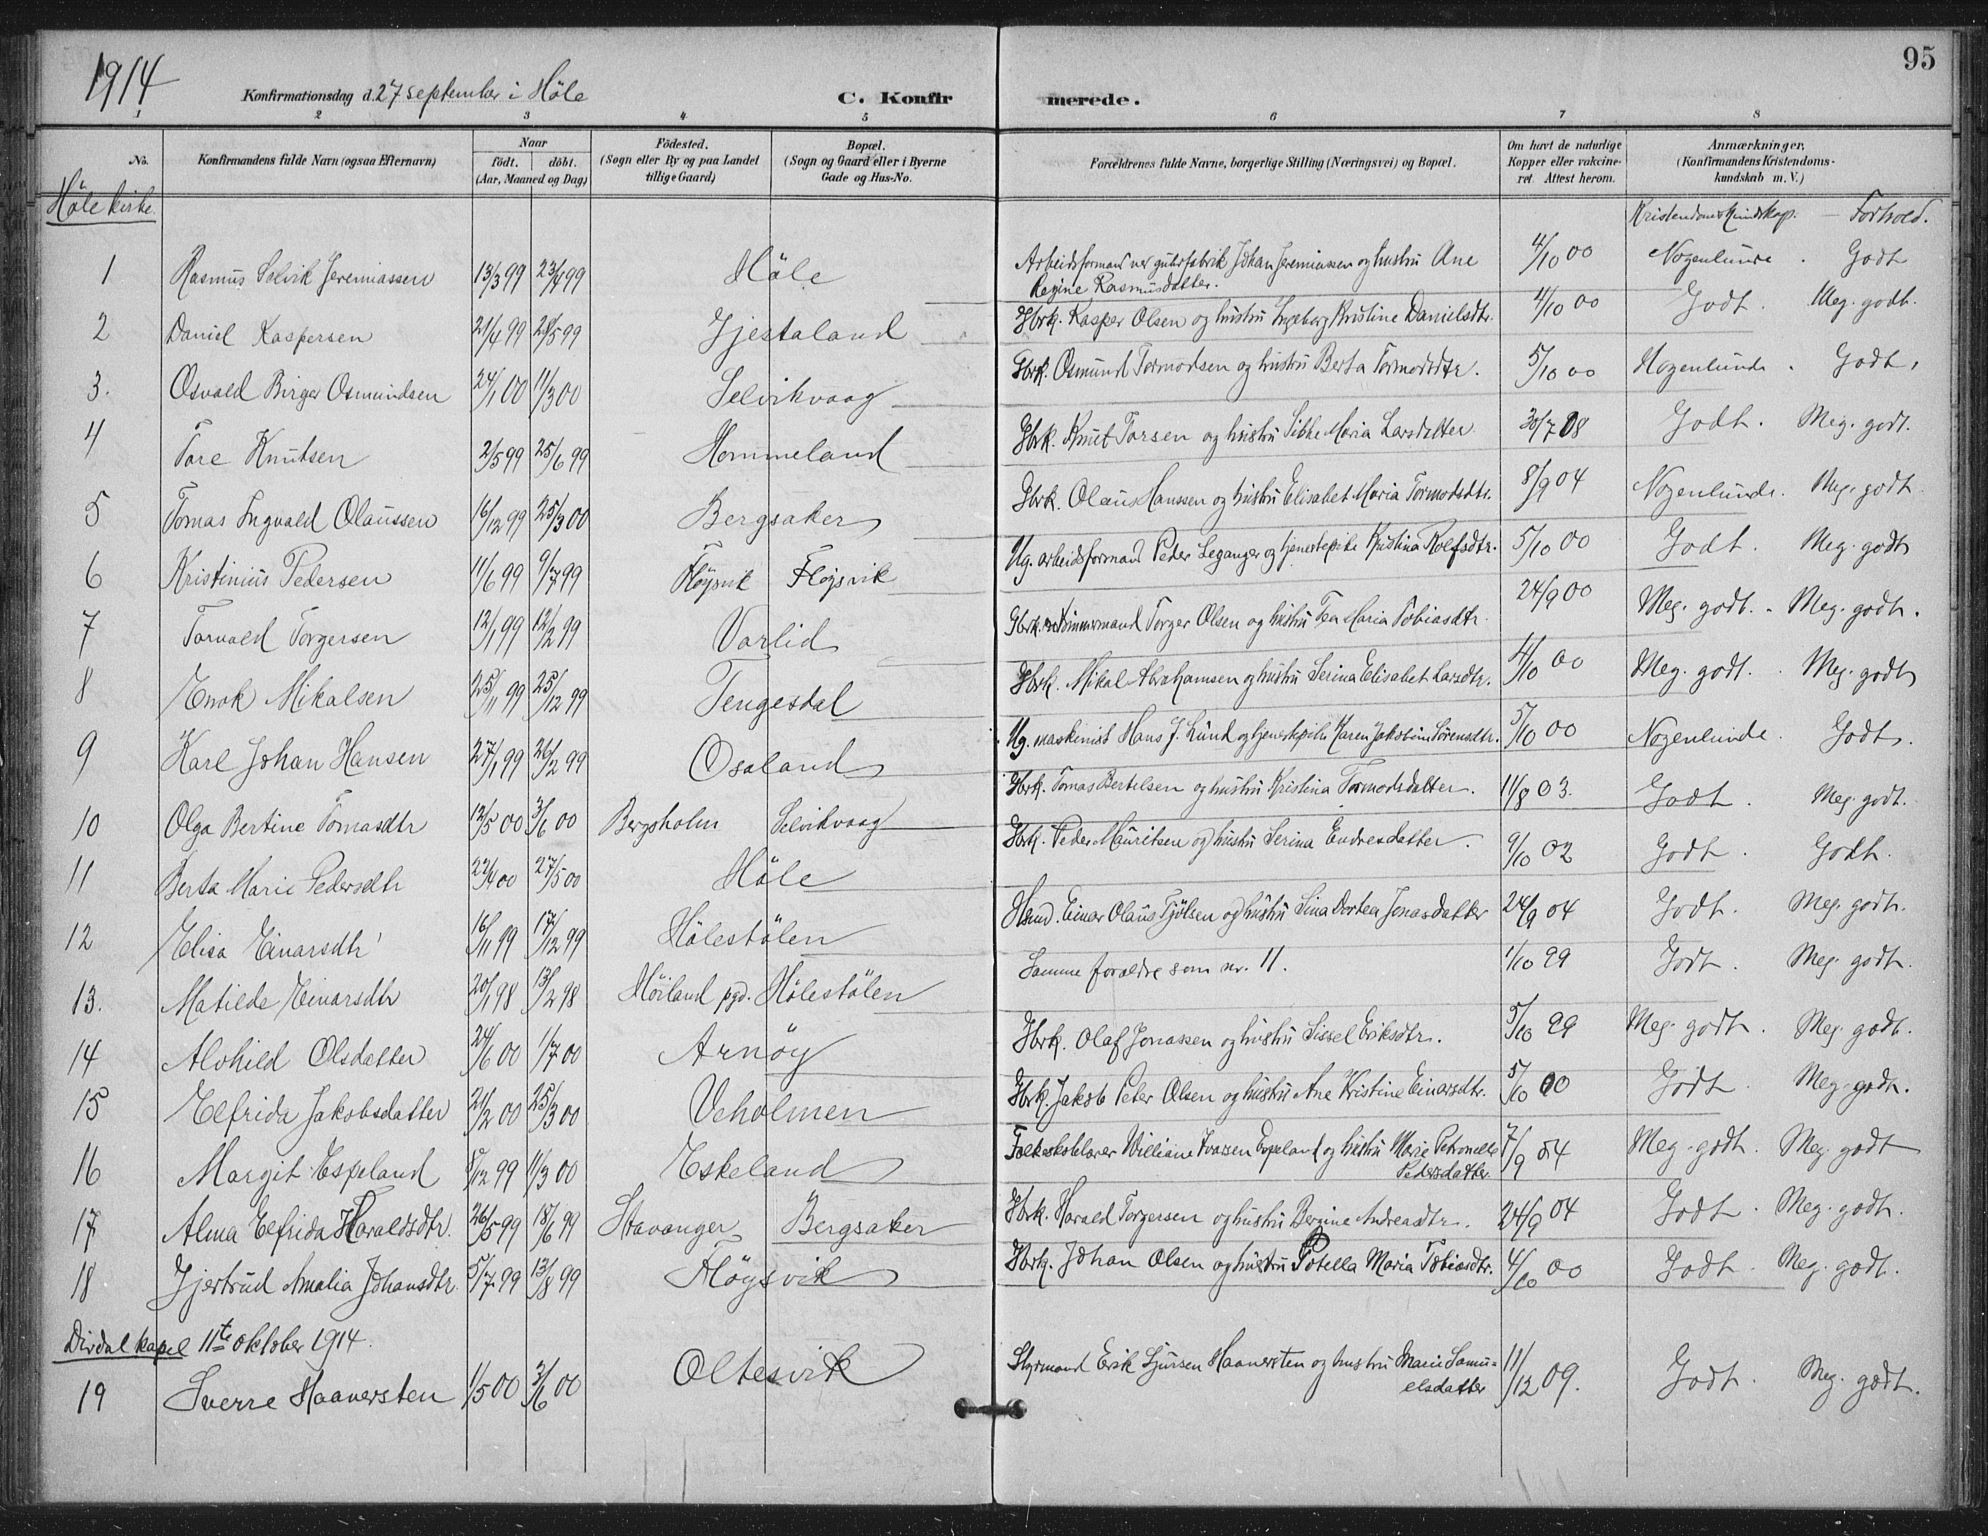 1914
95
Konfirmationsdag d. 27 september i Høle
C. Konfirmerede.
1 2 3 4 5 6 7 8
No.
Konfirmandens fulde Navn (ogsaa Efternavn)
Naar
født. døbt.
(Aar, Maaned og Dag)
Fødested.
(Sogn eller By og paa Landet
tillige Gaard)
Bopæl.
(Sogn og Gaard eller i Byerne
Gade og Hus-No.
Forældrenes fulde Navne, borgerlige Stilling (Næringsvei) og Bopæl.
Om havt de naturlige
Kopper eller vakcine-
ret. Attest herom.
Anmærkninger,
(Konfirmandens Kristendoms-
kundskab m. V.)
Høle kirke.
Kristendomskundskap. – Forhold.
1 Rasmus Selvik Jeremiassen 13/3 99 23/4 99 Høle Arbeidsformand ved guhrfabrik Johan Jeremiassen og hustru Ane Regine Rasmusdatter. 4/10 00 Nogenlunde. Godt
2 Daniel Kaspersen 21/4 99 28/5 99 Gjestaland Gbrk. Kasper Olsen og hustru Ingeborg Kristine Danielsdtr. 4/10 00 Godt. Meg. godt.
3. Osvald Birger Osmundsen 24/1 00 11/3 00 Selvikvaag Gbrk. Osmund Tormodsen og hustru Berta Tormodsdtr. 5/10 00 Nogenlunde. Godt.
4 Tore Knutsen 2/5 99 25/6 99 Hommeland Gbrk. Knut Torsen og hustru Sibke Maria Larsdatter 30/7 08 Godt. Meg. godt.
5 Tomas Ingvald Olaussen 16/12 99 25/3 00 Bergsaker Gbrk. Olaus Hanssen og hustru Elisabet Maria Tormodsdtr. 8/9 04 Nogenlunde. Meg. godt.
6 Kristinius Pedersen 11/6 99 9/7 99 Fløysvik Fløysvik Ug. arbeidsformand Peder Leganger og tjenestepike Kristina Rolfsdtr. 5/10 00 Godt. Meg. godt
7 Torvald Torgersen 12/1 99 12/2 99 Varlid Gbrk. tømmermand Torger Olsen og hustru Tea Maria Tobiasdtr. 24/9 00 Meg. godt. Meg. godt.
8 Enok Mikalsen 25/11 99 25/12 99 Tengesdal Gbrk. Mikal Abrahamsen og hustru Serina Elisabet Larsdtr. 4/10 00 Meg. godt. Meg. godt
9 Karl Johan Hansen 27/1 99 26/2 99 Osaland Ug. maskinist Hans J. Lund og tjenestepike Karen Jakobine Sørensdtr. 5/10 00 Nogenlunde. Godt.
10 Olga Bertine Tomasdtr 12/5 00 3/6 00 Bergsholm Selvikvaag Gbrk. Tomas Bertelsen og hustru Kristina Tormodsdatter. 11/8 03. Godt. Meg. godt.
11 Berta Marie Pedersdtr 22/4 00 27/5 00 Høle Gbrk. Peder Mauritsen og hustru Serina Endresdatter. 9/10 02 Godt. Godt.
12 Elisa Einarsdtr 16/11 99 17/12 99 Hølestølen Hand. Einar Olaus Tjølsen og hustru Sina Dortea Jonasdatter 24/9 04 Godt. Meg. godt.
13. Matilde Einarsdtr 20/1 98 13/2 98 Høiland pgd. Hølestølen Samme forældre som nr. 11. 1/10 99 Godt. Meg. godt.
14 Alvhild Olsdatter 24/6 00 1/7 00 Arnøy Gbrk. Olaf Jonassen og hustru Sissel Eriksdtr. 5/10 99 Meg. godt. Meg. godt.
15 Elfrida Jakobsdatter 21/2 00 25/3 00 Veholmen Gbrk. Jakob Peter Olsen og hustru Ane Kristine Einarsdtr. 5/10 00 Godt Meg. godt.
16 Margit Espeland 8/12 99 11/3 00 Eskeland Folkeskolelærer Williane Ivarsen Espeland og hustru Marie Petronelle Pedersdatter. 7/9 04 Meg. godt. Meg. godt
17 Alma Elfrida Haraldsdtr. 26/5 99 18/6 99 Stavanger Bergsaker Gbrk. Harald Torgersen og hustru Bergine Andreasdtr. 24/9 04 Godt. Meg. godt.
18 Gjertrud Amalia Johansdtr. 5/7 99 13/8 99 Fløysvik Gbrk. Johan Olsen og hustru Potella Maria Tobiasdtr. 4/10 00 Godt. Meg. godt.
Dirdal kapel 11te oktober 1914.
19 Sverre Haaversten 1/5 00 3/6 00 Oltesvik Styrmand Erik Sjursen Haaversten og hustru Marie Samu=
elsdatter 11/12 09. Godt. Meg. godt.